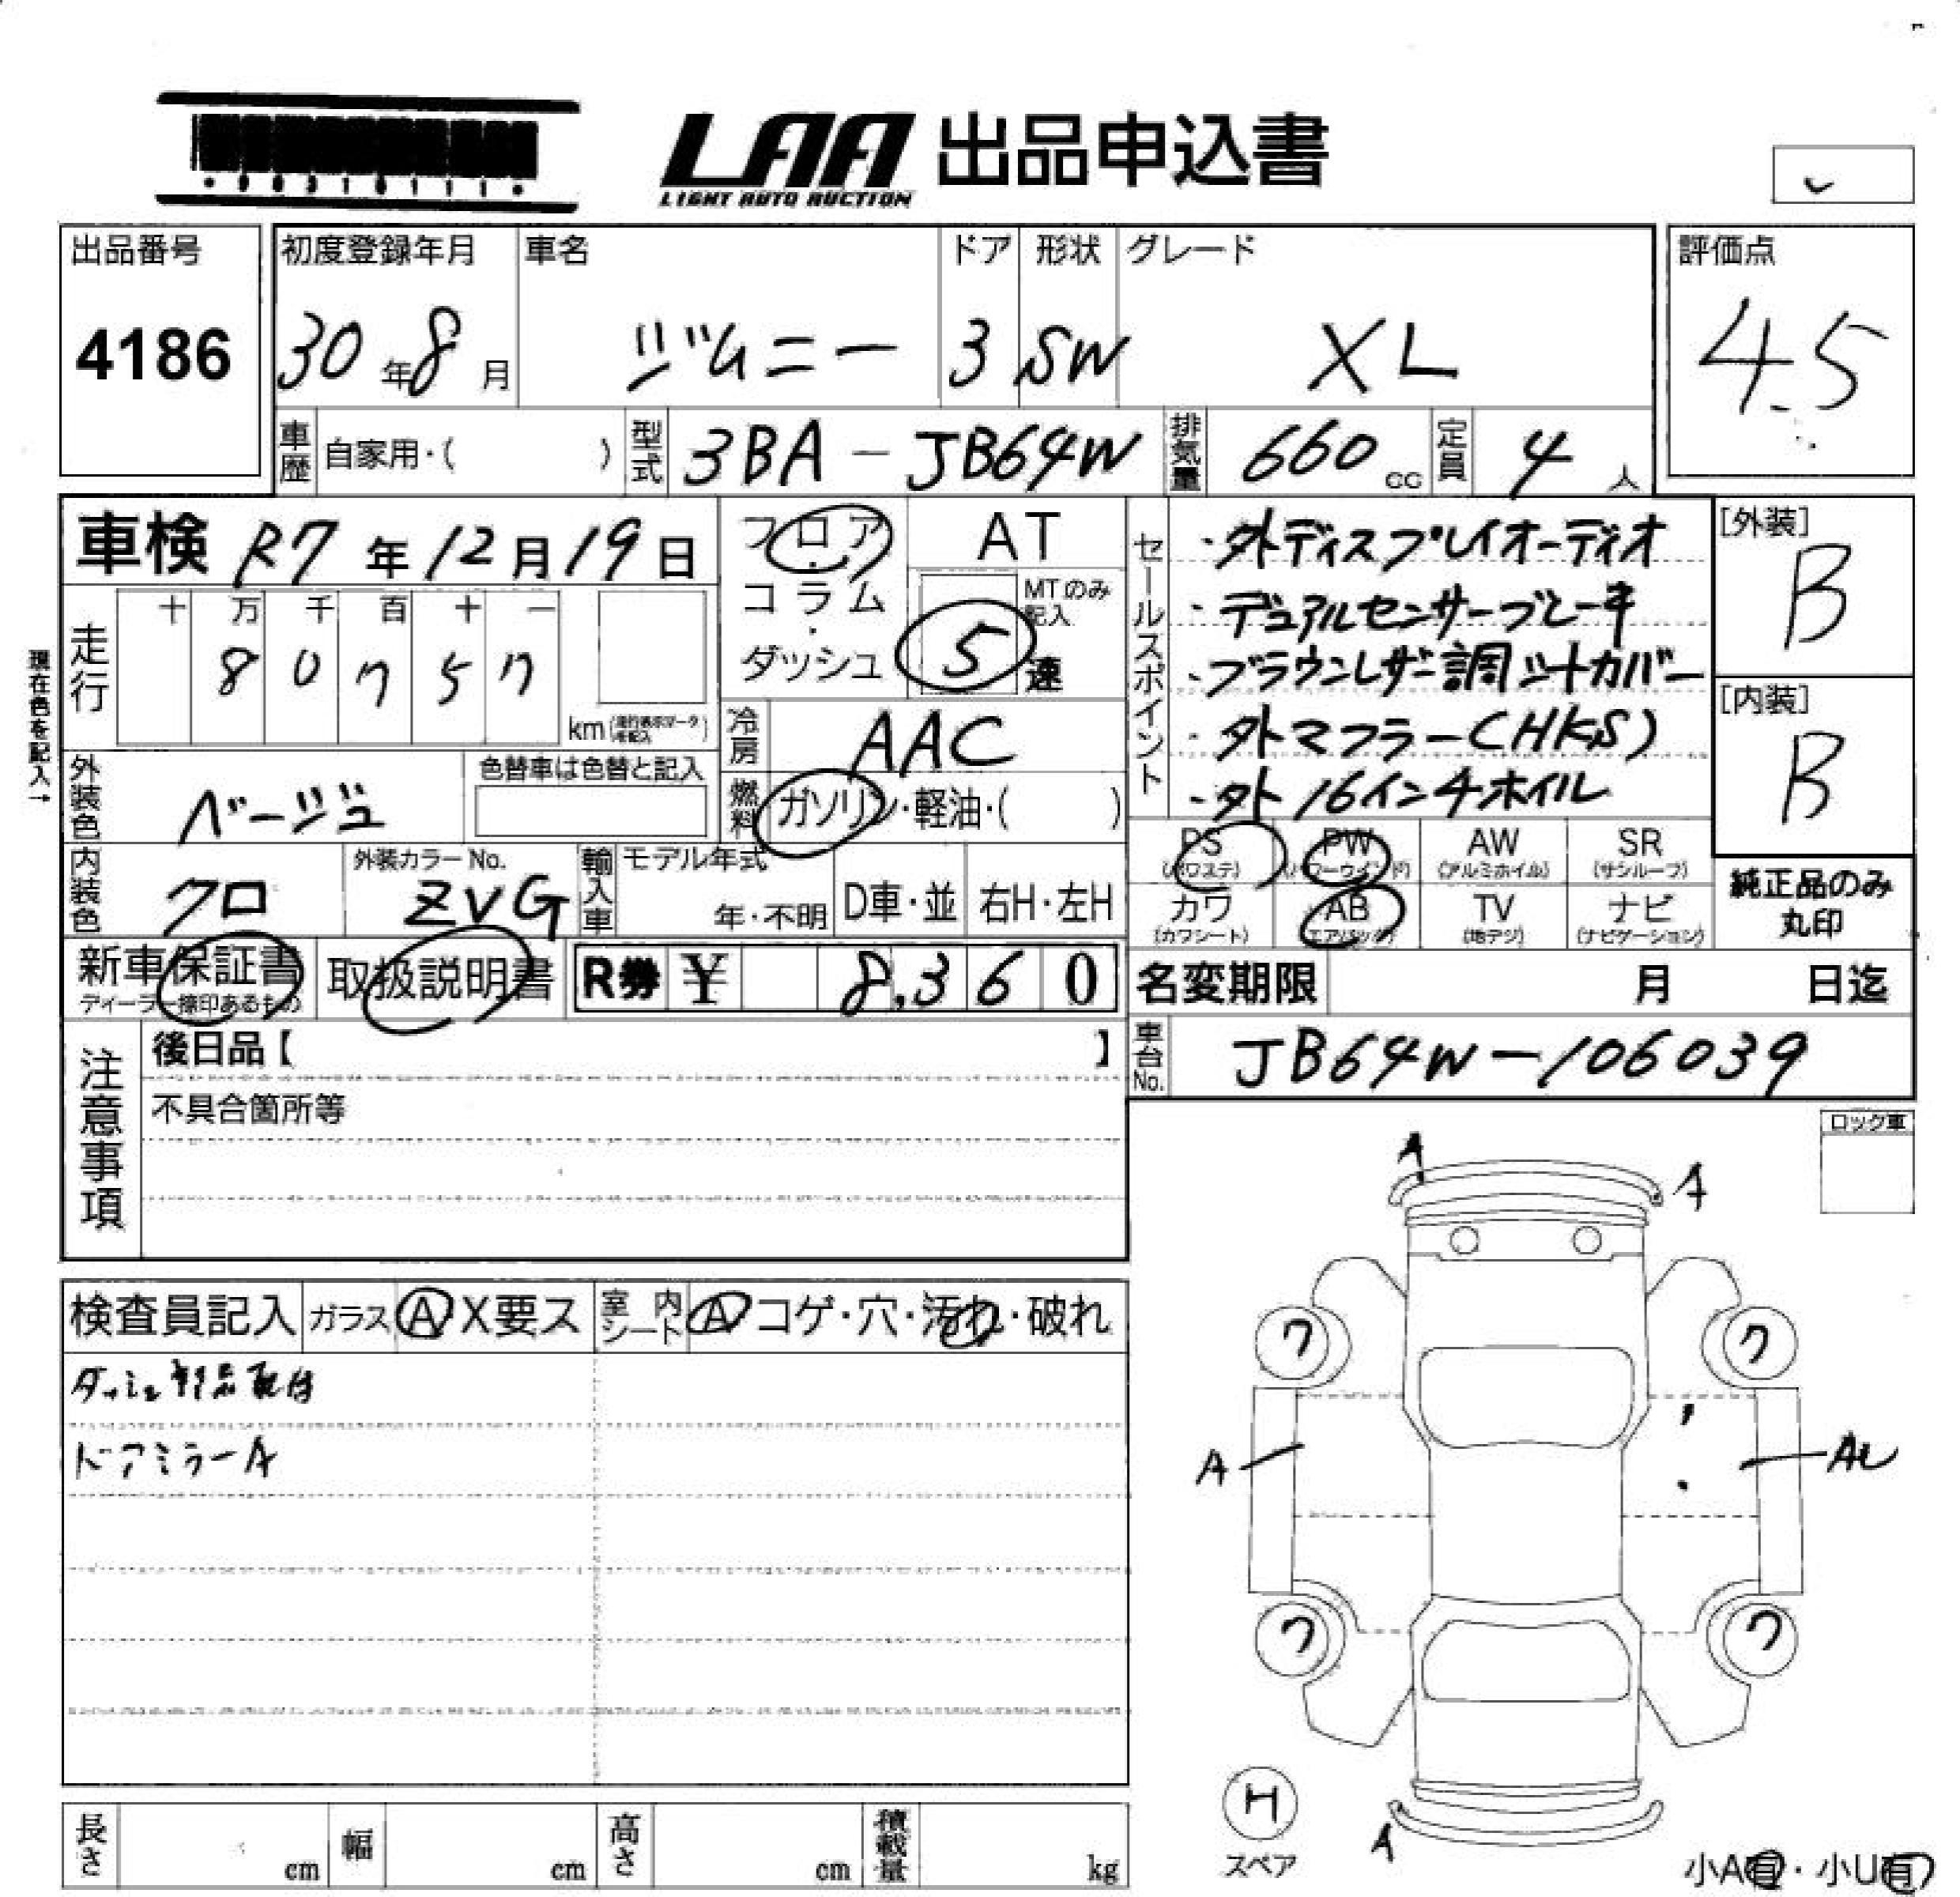 LAA 出品申込書
LIGHT AUTO AUCTION
出品番号
4186
初度登録年月
30年8月
車名
ジムニー
ドア
3
形状
SW
グレード
XL
評価点
4.5
車歴 自家用・( )
型式 3BA-JB64W
排気量 660cc
定員 4人
車検 R7年12月19日
現在色を記入→
走行
十 万 千 百 十 一
8 0 7 5 7
km
フロア・コラム・ダッシュ
AT
MTのみ記入
5速
冷房 AAC
燃料 ガソリン・軽油・( )
外装色 ベージュ
色替車は色替と記入
内装色 クロ
外装カラーNo. ZVG
輸入車
モデル年式
年・不明
D車・並
右H・左H
セールスポイント
・外ディスプレイオーディオ
・デュアルセンサーブレーキ
・ブラウンレザー調シートカバー
・外マフラー(HKS)
・外16インチホイル
[外装]
B
[内装]
B
PS (パワステ)
PW (パワーウインド)
AW (アルミホイル)
SR (サンルーフ)
カワ (カワシート)
AB (エアバッグ)
TV (地デジ)
ナビ (ナビゲーション)
純正品のみ
丸印
新車保証書
ディーラー捺印あるもの
取扱説明書
R券 ¥ 8,360
名変期限 月 日迄
車台No. JB64W-106039
注意事項
後日品【 】
不具合箇所等
ロック車
検査員記入
ガラス A X要ス
室内シート A コゲ・穴・汚れ・破れ
ダッシュ
ドアミラーA
A
A
ワ
ワ
A
AU
ワ
ワ
H
スペア
A
小A有・小U有
長さ cm
幅 cm
高さ cm
積載量 kg